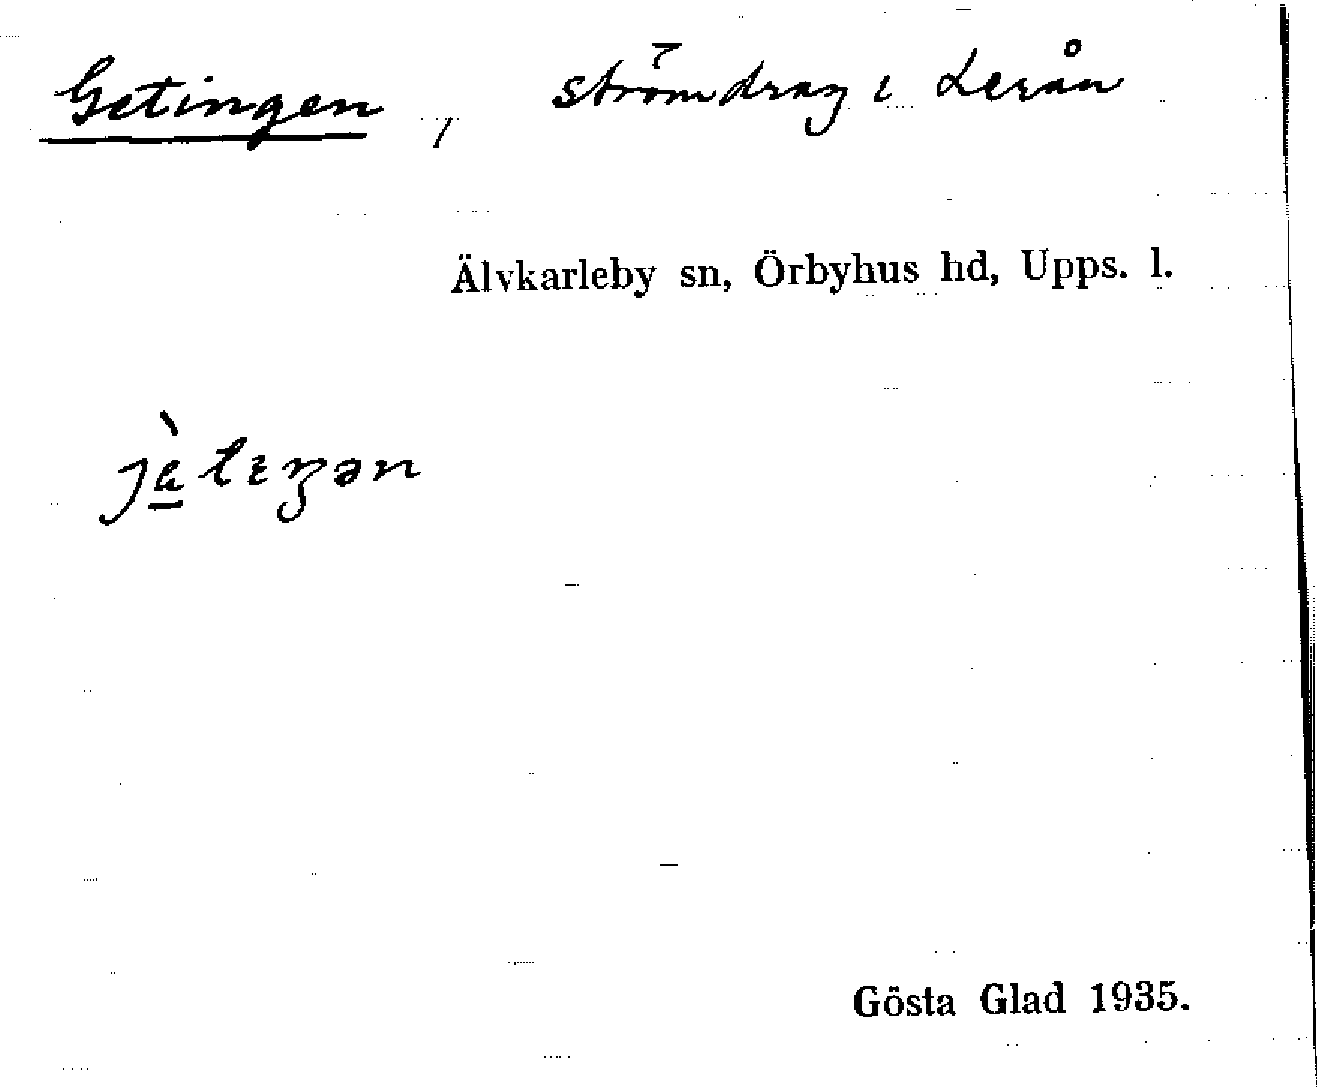 Getingen, strömdrag i Lerån
Älvkarleby sn, Örbyhus hd, Upps. l.
Gösta Glad 1935.